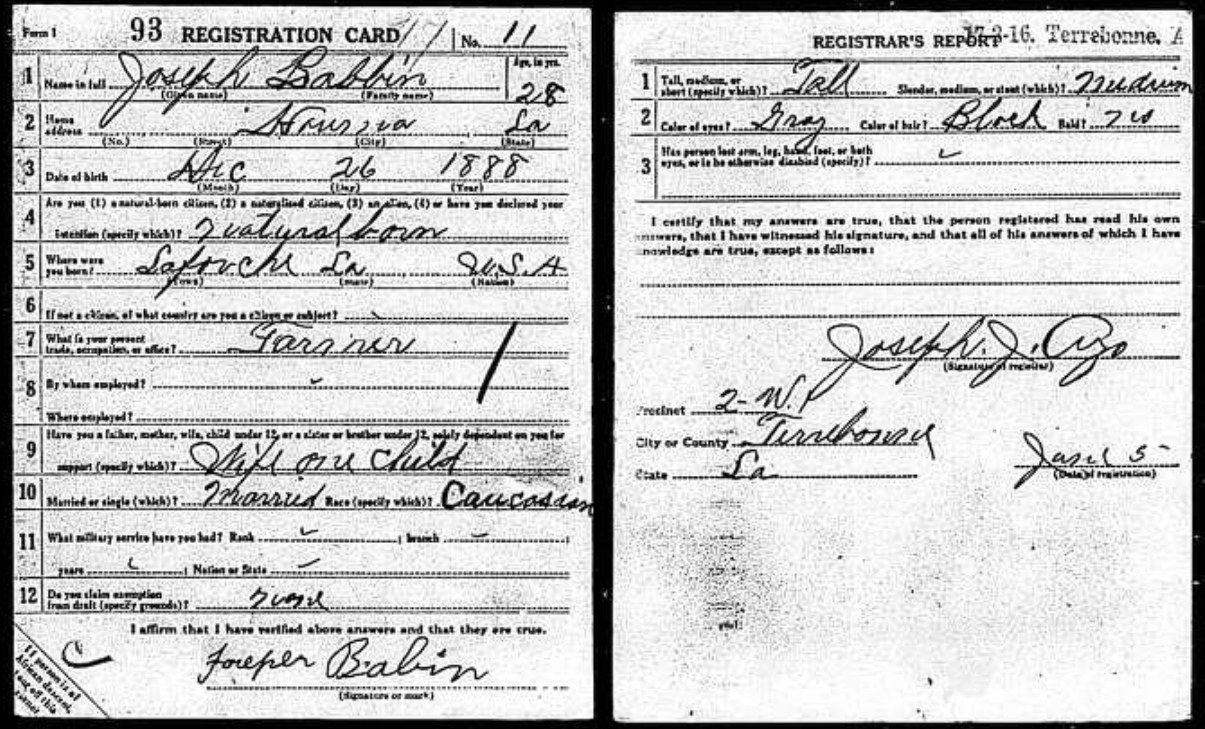 Form 1 93 REGISTRATION CARD 17 No. 11
1 Name in full Joseph Babbin Age, in yrs.
(Given name) (Family name) 28
2 Home address Houma La
(No.) (Street) (City) (State)
3 Date of birth Dec 26 1888
(Month) (Day) (Year)
4 Are you (1) a natural-born citizen, (2) a naturalized citizen, (3) an alien, (4) or have you declared your
intention (specify which)? Natural born
5 Where were you born? Lafouche La U.S.A
(Town) (State) (Nation)
6 If not a citizen, of what country are you a citizen or subject?
7 What is your present trade, occupation, or office? Farmer
8 By whom employed?
Where employed?
9 Have you a father, mother, wife, child under 12, or a sister or brother under 12, solely dependent on you for
support (specify which)? Wife one child
10 Married or single (which)? Married Race (specify which)? Caucasian
11 What military service have you had? Rank ; branch ;
years ; Nation or State
12 Do you claim exemption from draft (specify grounds)? None
I affirm that I have verified above answers and that they are true.
Babin
(Signature or mark)
If person is of
African descent,
tear off this
corner.
17-3-16. Terrebonne.
REGISTRAR'S REPORT
1 Tall, medium, or short (specify which)? Tall Slender, medium, or stout (which)? Medium
2 Color of eyes? Gray Color of hair? Black Bald? No
3 Has person lost arm, leg, hand, foot, or both
eyes, or is he otherwise disabled (specify)?
I certify that my answers are true, that the person registered has read his own
answers, that I have witnessed his signature, and that all of his answers of which I have
knowledge are true, except as follows:
Joseph. J. Ayo
(Signature of registrar)
Precinct 2-W.
City or County Terrebonne
State La
June 5
(Date of registration)